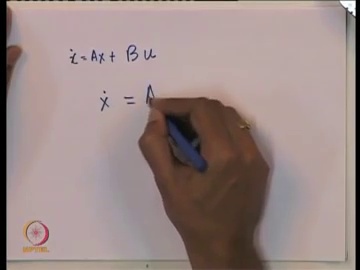 ẋ = Ax + Bu
ẋ = A
NPTEL